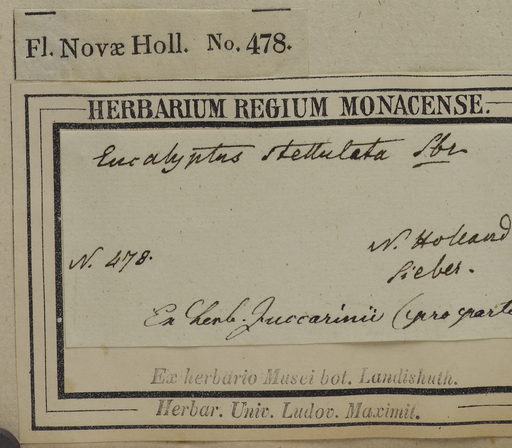 Fl. Novæ Holl. No. 478.
HERBARIUM REGIUM MONACENSE.
Eucalyptus stellulata Sbr
N. 478.
N. Holland
Sieber.
Ex herb. Zuccarinii (pro parte
Ex herbario Musei bot. Landishuth.
Herbar. Univ. Ludov. Maximit.